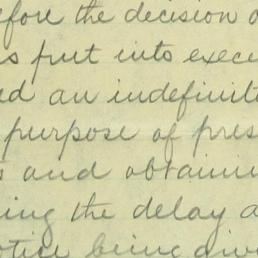 efore the decision o
s put into exec
ed an indefinit
purpose of pres
s and obtainin
ing the delay a
otice being giv